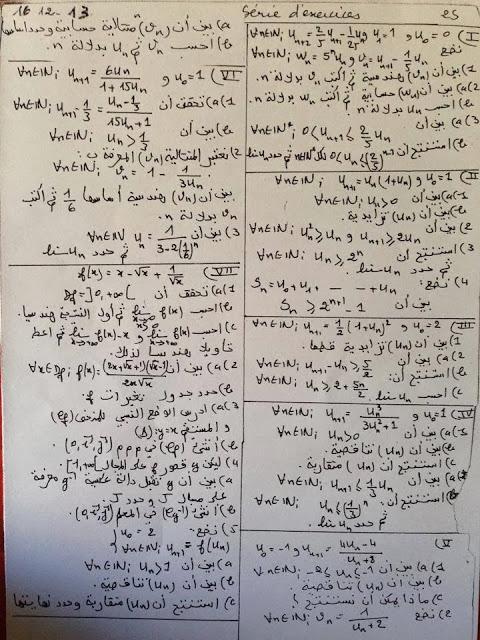 Série d'exercices
25
I) u₀ = 0 و u₁ = 1 و ∀n∈ℕ; uₙ₊₂ = 2/5 uₙ₊₁ − 1/25 uₙ
نضع vₙ = uₙ₊₁ − 1/5 uₙ و wₙ = 5ⁿuₙ ∀n∈ℕ;
1) بين أن (vₙ) هندسية ثم اكتب vₙ بدلالة n.
2) a) بين أن (wₙ) حسابية ثم اكتب wₙ بدلالة n.
b) احسب uₙ بدلالة n.
3) a) بين أن ∀n∈ℕ*; 0 < uₙ₊₁ ≤ 2/5 uₙ
b) استنتج أن 0 < uₙ ≤ (2/5)ⁿ⁻¹ لكل n∈ℕ* ثم حدد lim uₙ
II) u₀ = 1 و uₙ₊₁ = uₙ(1+uₙ) ∀n∈ℕ;
1) a) بين أن uₙ > 0 ∀n∈ℕ;
b) بين أن (uₙ) تزايدية.
2) بين أن uₙ₊₁ ≥ 2uₙ و uₙ² ≥ uₙ ∀n∈ℕ;
3) استنتج أن uₙ ≥ 2ⁿ ∀n∈ℕ;
ثم حدد lim uₙ.
4) نضع: Sₙ = u₀ + u₁ + --- + uₙ
بين أن Sₙ ≥ 2ⁿ⁺¹ − 1
III) u₀ = 2 و uₙ₊₁ = 1/2 (1+uₙ)² ∀n∈ℕ;
1) بين أن (uₙ) تزايدية قطعا.
2) a) بين أن uₙ₊₁ − uₙ ≥ 5/2 ∀n∈ℕ;
b) استنتج أن: uₙ ≥ 2 + 5n/2 ∀n∈ℕ;
c) احسب lim uₙ.
IV) u₀ = 1 و uₙ₊₁ = uₙ³/(3uₙ²+1) ∀n∈ℕ;
1) a) بين أن uₙ > 0 ∀n∈ℕ;
b) بين أن (uₙ) تناقصية.
c) استنتج أن (uₙ) متقاربة.
2) a) بين أن uₙ₊₁ ≤ 1/3 uₙ ∀n∈ℕ;
b) استنتج أن: uₙ ≤ (1/3)ⁿ ∀n∈ℕ;
ثم حدد lim uₙ.
V) u₀ = −1 و uₙ₊₁ = (4uₙ−4)/(uₙ+8)
1) a) بين أن −2 < uₙ ≤ −1 ∀n∈ℕ;
b) بين أن (uₙ) تناقصية.
c) ماذا يمكن أن تستنتج؟
2) نضع vₙ = 1/(uₙ+2) ∀n∈ℕ;
16-12-13
a) بين أن (vₙ) متتالية حسابية وحدد أساسها
b) احسب vₙ ثم uₙ بدلالة n.
VI) u₀ = 1 و uₙ₊₁ = 6uₙ/(1+15uₙ) ∀n∈ℕ;
1) a) تحقق أن uₙ₊₁ − 1/3 = (uₙ−1/3)/(15uₙ+1) ∀n∈ℕ;
b) بين أن uₙ > 1/3 ∀n∈ℕ;
2) نعتبر المتتالية (vₙ) المعرفة ب:
vₙ = 1 − 1/(3uₙ) ∀n∈ℕ;
بين أن (vₙ) هندسية أساسها 1/6 ثم اكتب
vₙ بدلالة n.
3) بين أن uₙ = 1/(3−2(1/6)ⁿ) ∀n∈ℕ
ثم حدد lim uₙ
VII) f(x) = x − √x + 1/√x
1) a) تحقق أن Df = ]0, +∞[
b) احسب lim f(x) x→0 x>0 ثم أول النتيجة هندسيا.
c) احسب lim f(x) x→+∞ و lim f(x)−x x→+∞ ثم اعط
تأويلا هندسيا لذلك.
2) a) بين أن ∀x∈Df; f'(x) = (2x+√x+1)(√x−1)/(2x√x)
b) حدد جدول تغيرات f.
3) a) ادرس الوضع النسبي للمنحنى (Cf)
و المستقيم (Δ): y=x
b) أنشئ (Cf) في م م م (o, i, j).
4) ليكن g قصور f على المجال [1,+∞[
a) بين أن g تقبل دالة عكسية g⁻¹ معرفة
على مجال J وحدد J.
b) أنشئ (Cg⁻¹) في المعلم (o, i, j).
5) نضع: u₀ = 2
∀n∈ℕ; uₙ₊₁ = f(uₙ)
a) بين أن uₙ > 1 ∀n∈ℕ;
b) بين أن (uₙ) تناقصية.
c) استنتج أن (uₙ) متقاربة وحدد نهايتها